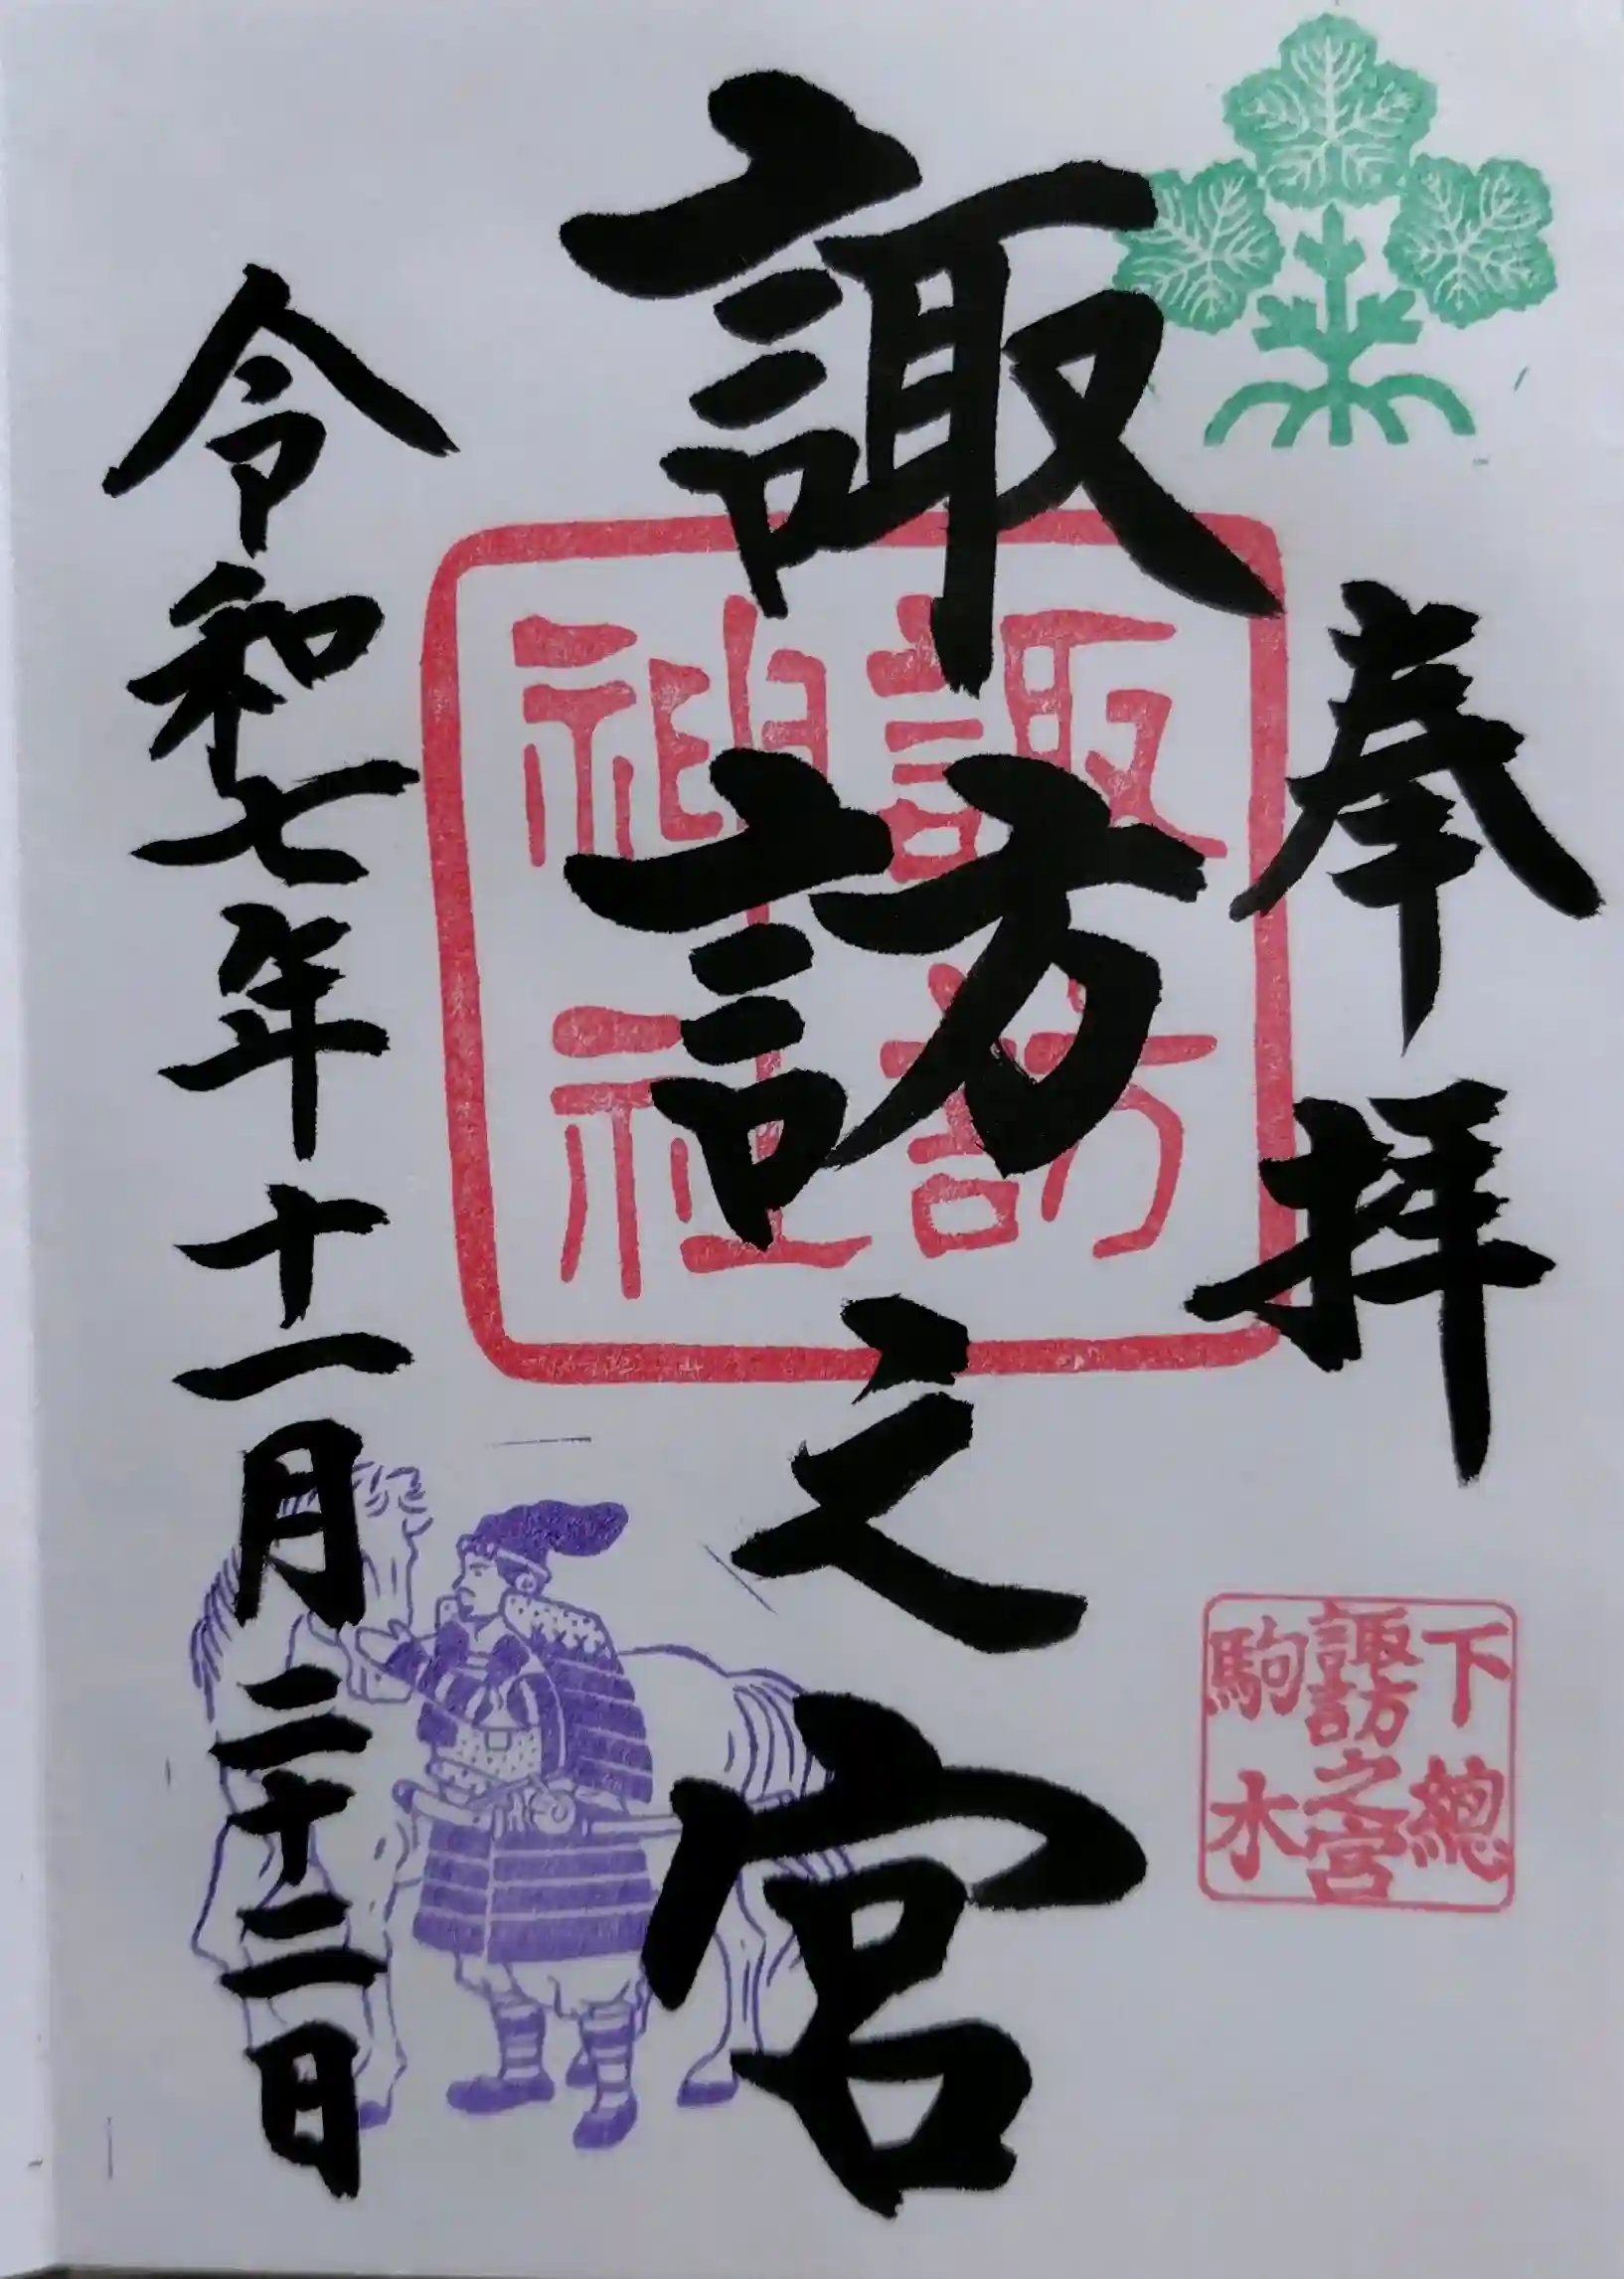 奉拝
下總
諏訪之宮
駒木
諏訪之宮
諏訪
神社
令和七年十一月二十二日